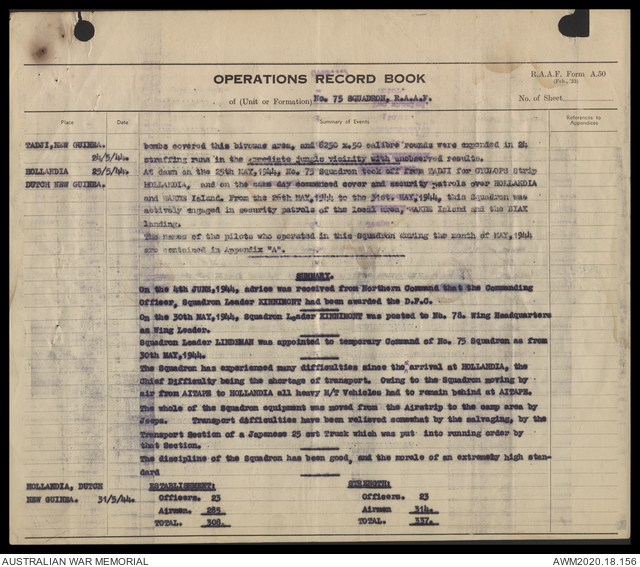 OPERATIONS RECORD BOOK
R.A.A.F. Form A.50
(Feb., '33)
of (Unit or Formation) No. 75 SQUADRON, R.A.A.F.
No. of Sheet
Place Date Summary of Events References to Appendices
TADJI, NEW GUINEA. bombs covered this bivouac area, and 6250 x .50 calibre rounds were expended in 24
24/5/44. straffing runs in the immediate jungle vicinity with unobserved results.
HOLLANDIA 25/5/44. At dawn on the 25th MAY,1944, No. 75 Squadron took off from TADJI for CYCLOPS Strip
DUTCH NEW GUINEA. HOLLANDIA, and on the same day commenced cover and security patrols over HOLLANDIA
and WAKDE Island. From the 26th MAY,1944 to the 31st. MAY,1944, this Squadron was
actively engaged in security patrols of the local area, WAKDE Island and the BIAK
landing.
The names of the pilots who operated in this Squadron during the month of MAY,1944
are contained in Appendix "A".
SUMMARY.
On the 4th JUNE,1944, advice was received from Northern Command that the Commanding
Officer, Squadron Leader KINNIMONT had been awarded the D.F.C.
On the 30th MAY,1944, Squadron Leader KINNIMONT was posted to No. 78. Wing Headquarters
as Wing Leader.
Squadron Leader LINDEMAN was appointed to temporary Command of No. 75 Squadron as from
30th MAY,1944.
The Squadron has experienced many difficulties since the arrival at HOLLANDIA, the
Chief Difficulty being the shortage of transport. Owing to the Squadron moving by
air from AITAPE to HOLLANDIA all heavy M/T Vehicles had to remain behind at AITAPE.
The whole of the Squadron equipment was moved from the Airstrip to the camp area by
Jeeps. Transport difficulties have been relieved somewhat by the salvaging, by the
Transport Section of a Japanese 25 cwt Truck which was put into running order by
that Section.
The discipline of the Squadron has been good, and the morale of an extremely high stan-
dard
HOLLANDIA, DUTCH ESTABLISHMENT: STRENGTH:
NEW GUINEA. 31/5/44. Officers. 23 Officers. 23
Airmen. 285 Airmen 314.
TOTAL. 308. TOTAL. 337.
AUSTRALIAN WAR MEMORIAL
AWM2020.18.156